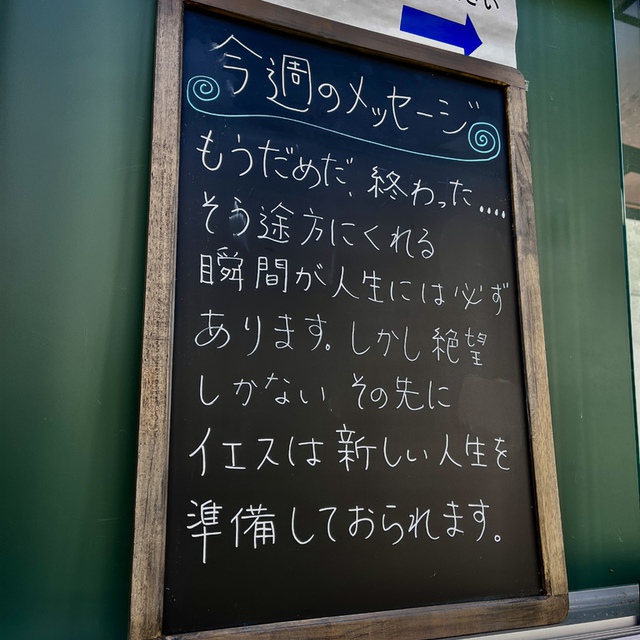 さい
今週のメッセージ
もうだめだ、終わった....
そう途方にくれる
瞬間が人生には必ず
あります。しかし絶望
しかない その先に
イエスは新しい人生を
準備しておられます。